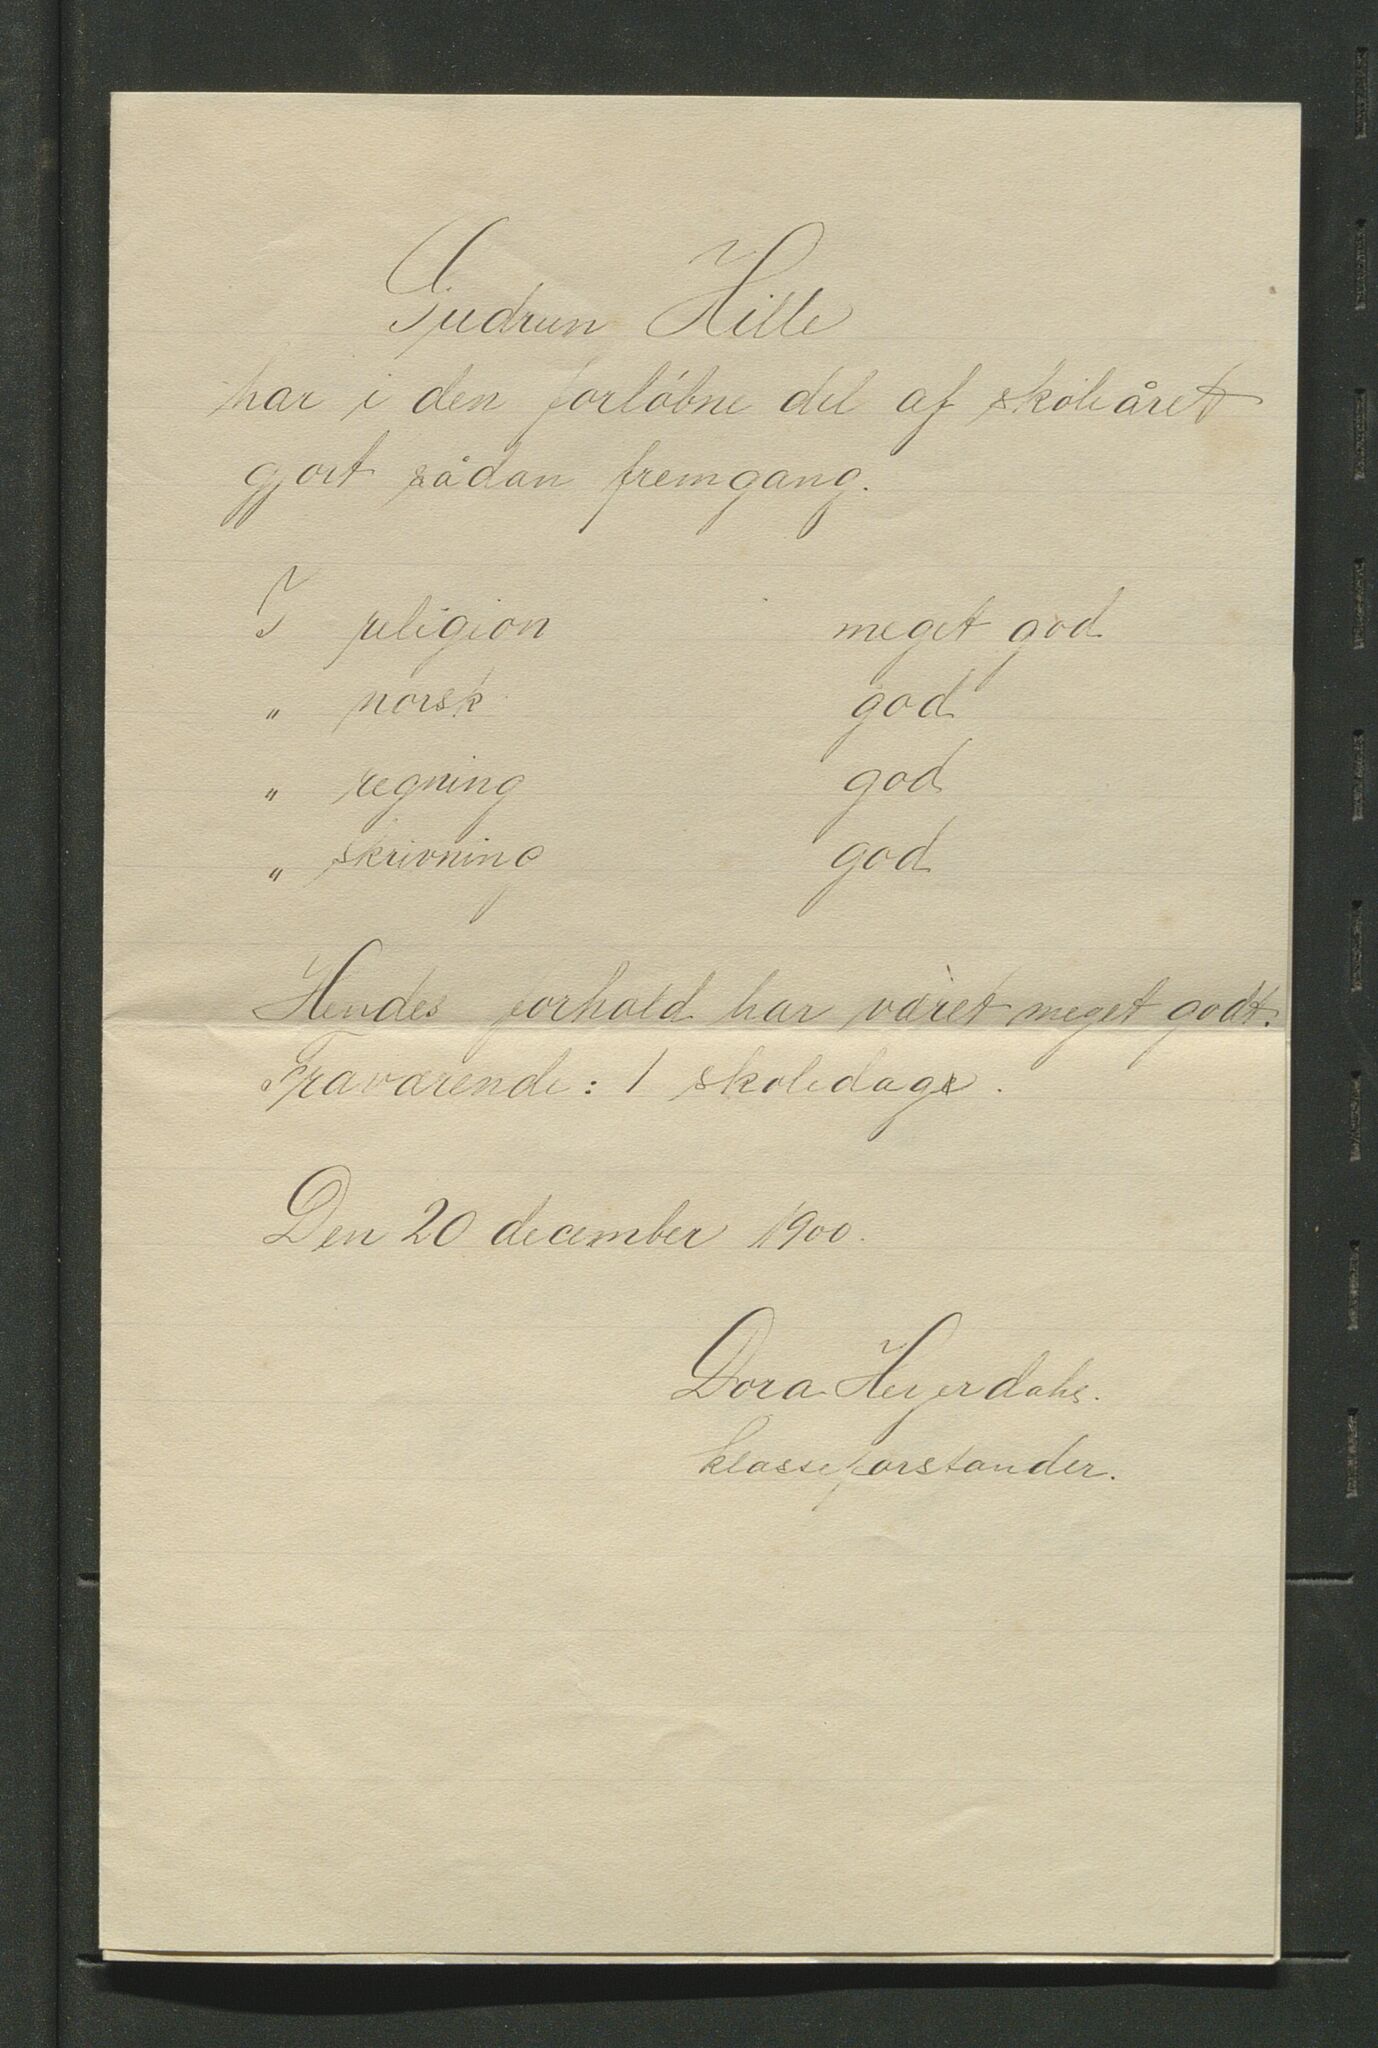 Gudrun Hille
har i den forløbne del af skoleåret
gjort sådan fremgang.
I religion meget god
" norsk god
" regning god
" skrivning god
Hendes forhold har været meget godt.
Fraværende: 1 skoledage.
Den 20 december 1900.
Dora Heyerdahl.
klasseforstander.